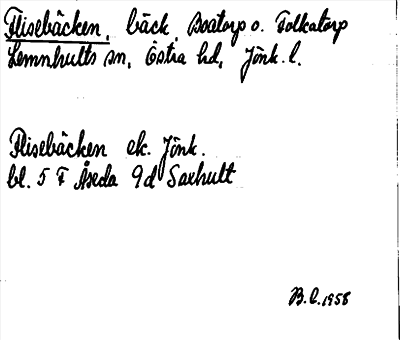 Flisebäcken, bäck, Boatorp o. Folkatorp
Lemnhults sn, Östra hd, Jönk. l.
Flisebäcken ek. Jönk.
bl. 5 F Åseda 9d Saxhult
B. L. 1958